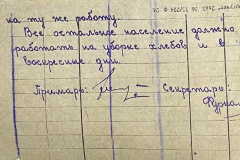 на ту же работу.
Все остальное население должно
работать на уборке хлебов и в
воскресные дни.
Примарь: Секретарь: